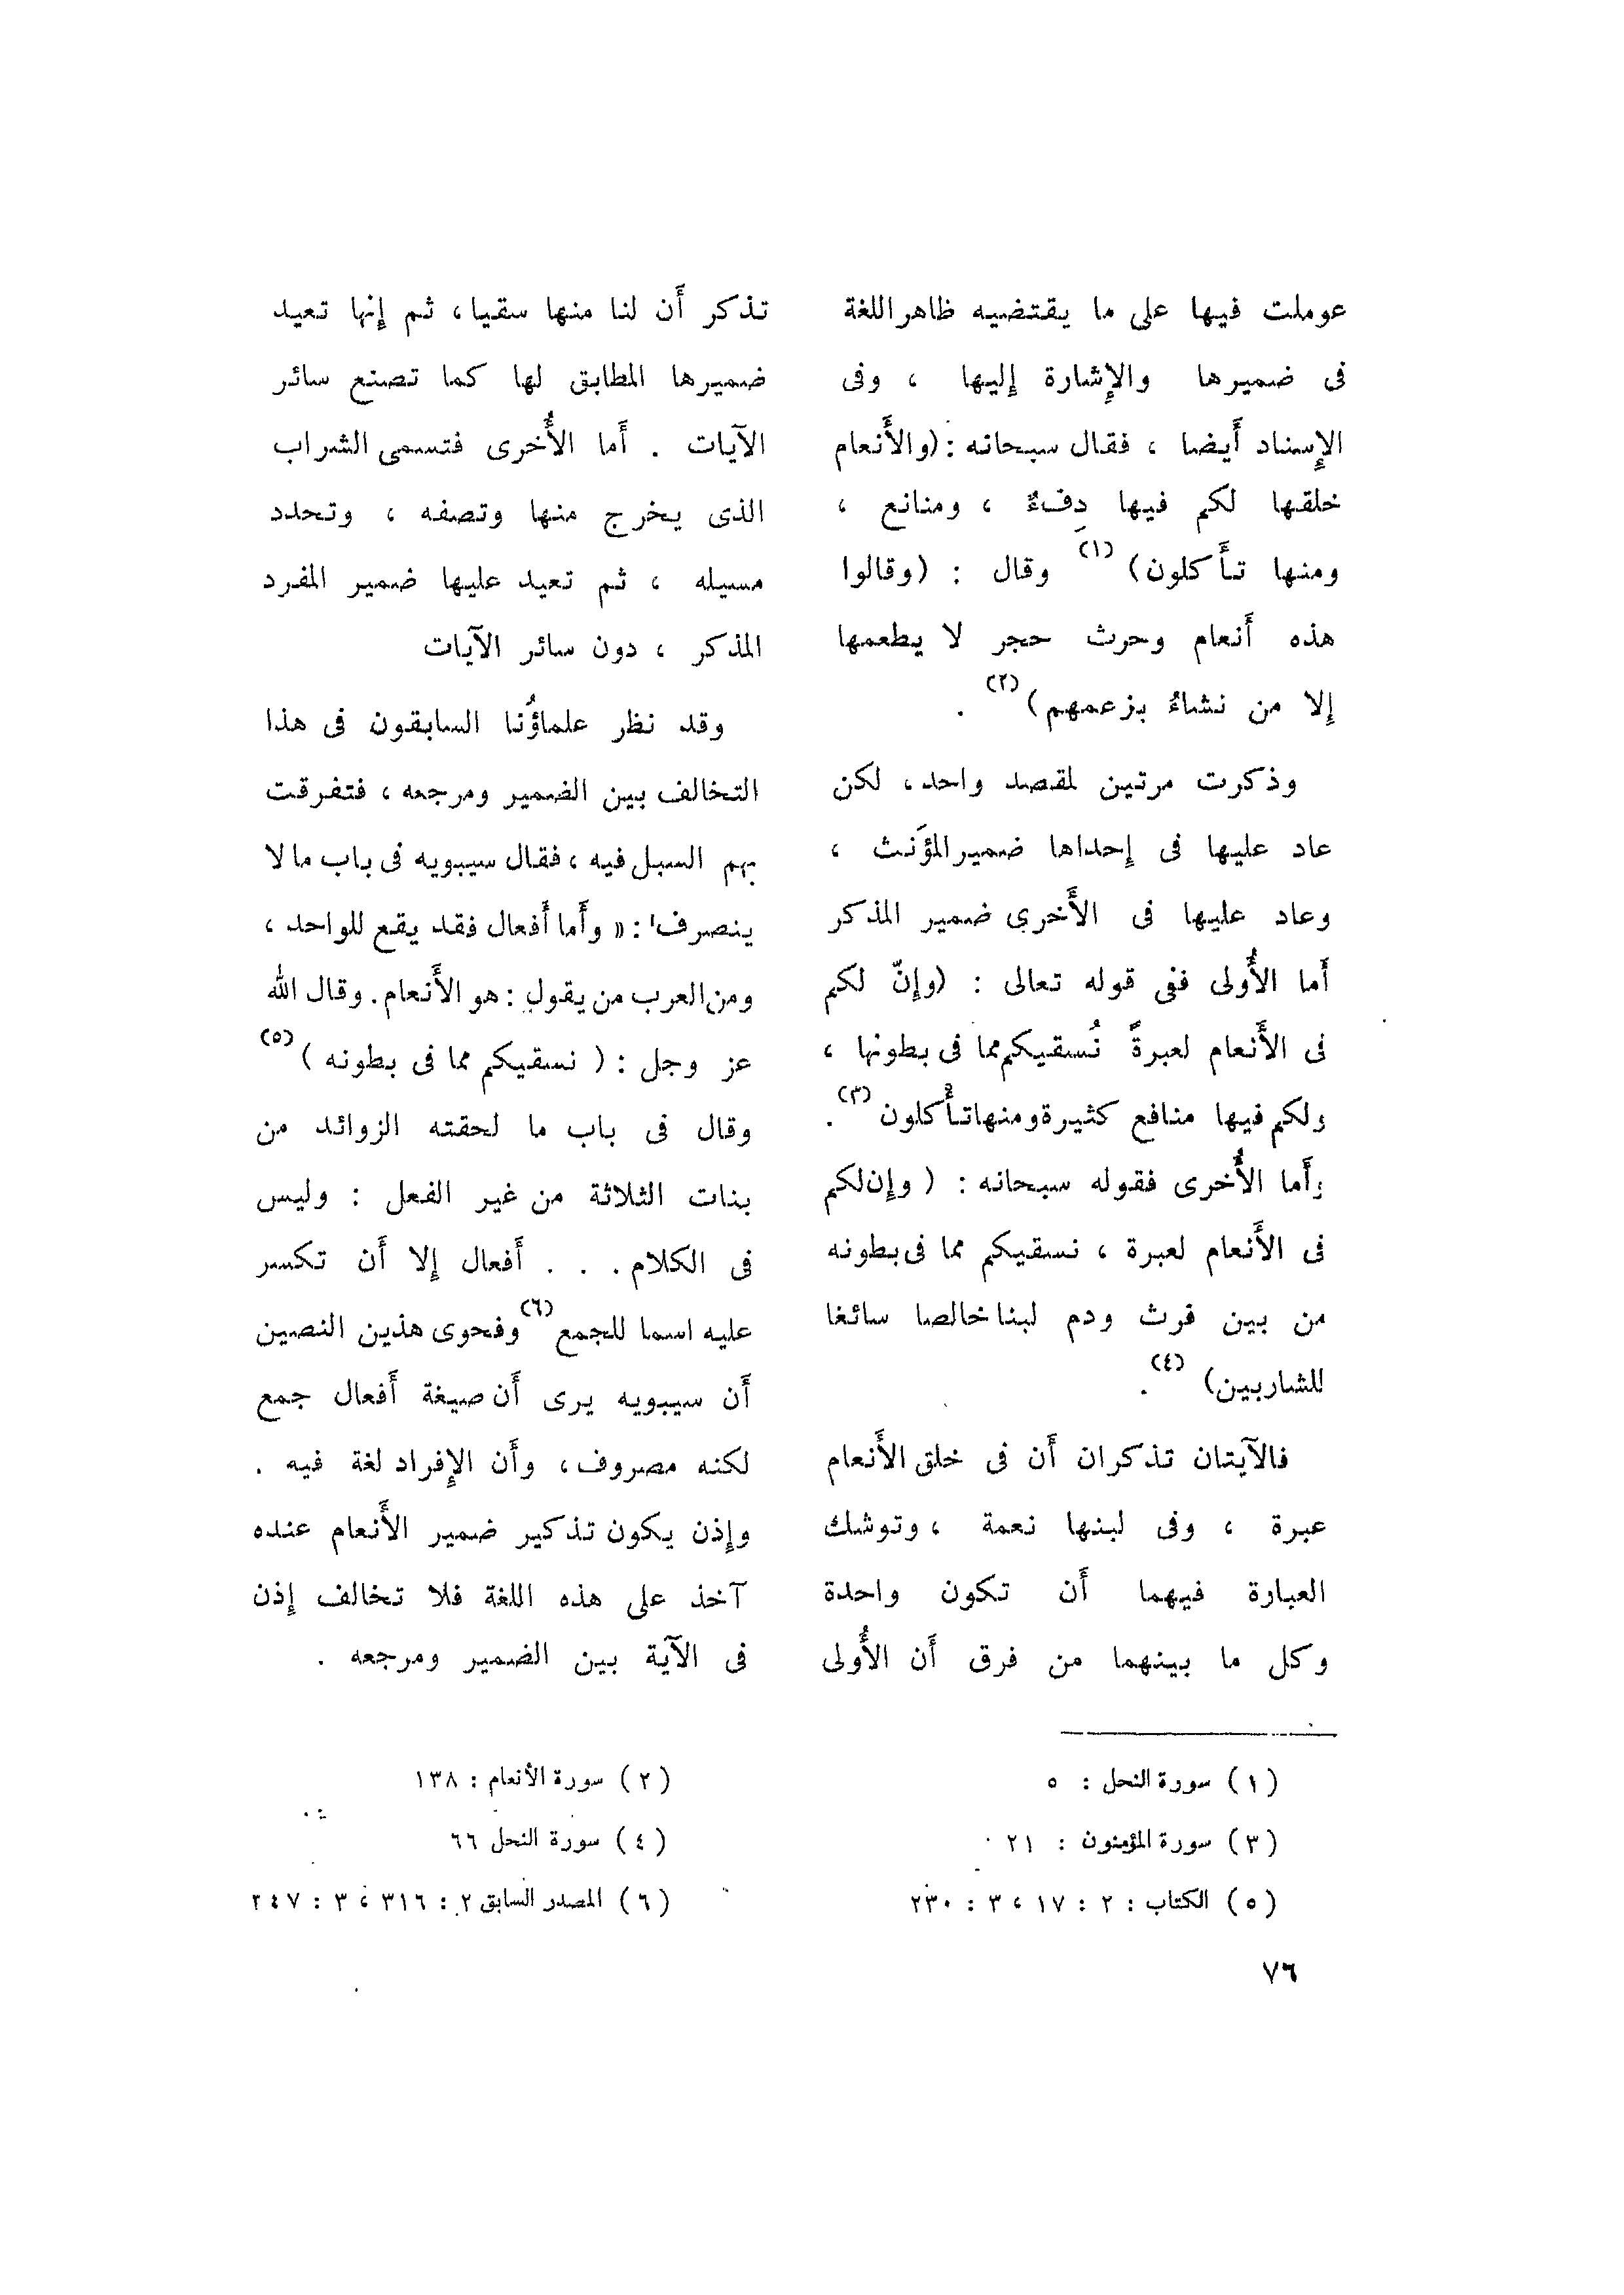 عوملت فيها على ما يقتضيه ظاهر اللغة
فى ضميرها والإشارة إليها ، وفى
الإسناد أَيضا ، فقال سبحانه : (والأَنعام
خلقها لكم فيها دِفءٌ ، ومنافع ،
ومنها تأَكلون) (١) وقال : (وقالوا
هذه أَنعام وحرث حجر لا يطعمها
إلا من نشاءُ بزعمهم) (٢) .
وذكرت مرتين لمقصد واحد ، لكن
عاد عليها فى إحداها ضمير المؤَنث ،
وعاد عليها فى الأَخرى ضمير المذكر
أَما الأُولى ففى قوله تعالى : (وإنّ لكم
فى الأَنعام لعبرةً نُسقيكم مما فى بطونها ،
ولكم فيها منافع كثيرة ومنها تأْكلون (٣) .
وأَما الأُخرى فقوله سبحانه : ( وإن لكم
فى الأَنعام لعبرة ، نسقيكم مما فى بطونه
من بين فرث ودم لبنا خالصا سائغا
للشاربين) (٤) .
فالآيتان تذكران أَن فى خلق الأَنعام
عبرة ، وفى لبنها نعمة ، وتوشك
العبارة فيهما أَن تكون واحدة
وكل ما بينهما من فرق أَن الأُولى
تذكر أَن لنا منها سقيا ، ثم إنها تعيد
ضميرها المطابق لها كما تصنع سائر
الآيات . أَما الأُخرى فتسمى الشراب
الذى يخرج منها وتصفه ، وتحدد
مسيله ، ثم تعيد عليها ضمير المفرد
المذكر ، دون سائر الآيات
وقد نظر علماؤُنا السابقون فى هذا
التخالف بين الضمير ومرجعه ، فتفرقت
بهم السبل فيه ، فقال سيبويه فى باب ما لا
ينصرف : « وأَما أَفعال فقد يقع للواحد ،
ومن العرب من يقول : هو الأَنعام . وقال الله
عز وجل : ( نسقيكم مما فى بطونه ) (٥)
وقال فى باب ما لحقته الزوائد من
بنات الثلاثة من غير الفعل : وليس
فى الكلام . . . أَفعال إلا أَن تكسر
عليه اسما للجمع (٦) وفحوى هذين النصين
أَن سيبويه يرى أَن صيغة أَفعال جمع
لكنه مصروف ، وأَن الإفراد لغة فيه .
وإذن يكون تذكير ضمير الأَنعام عنده
آخذ على هذه اللغة فلا تخالف إذن
فى الآية بين الضمير ومرجعه .
(١) سورة النحل : ٥
(٢) سورة الأنعام : ١٣٨
(٣) سورة المؤمنون : ٢١
(٤) سورة النحل ٦٦
(٥) الكتاب : ٢ : ١٧ ، ٣ : ٢٣٠
(٦) المصدر السابق ٢ : ٣١٦ ، ٣ : ٢٤٧
٧٦